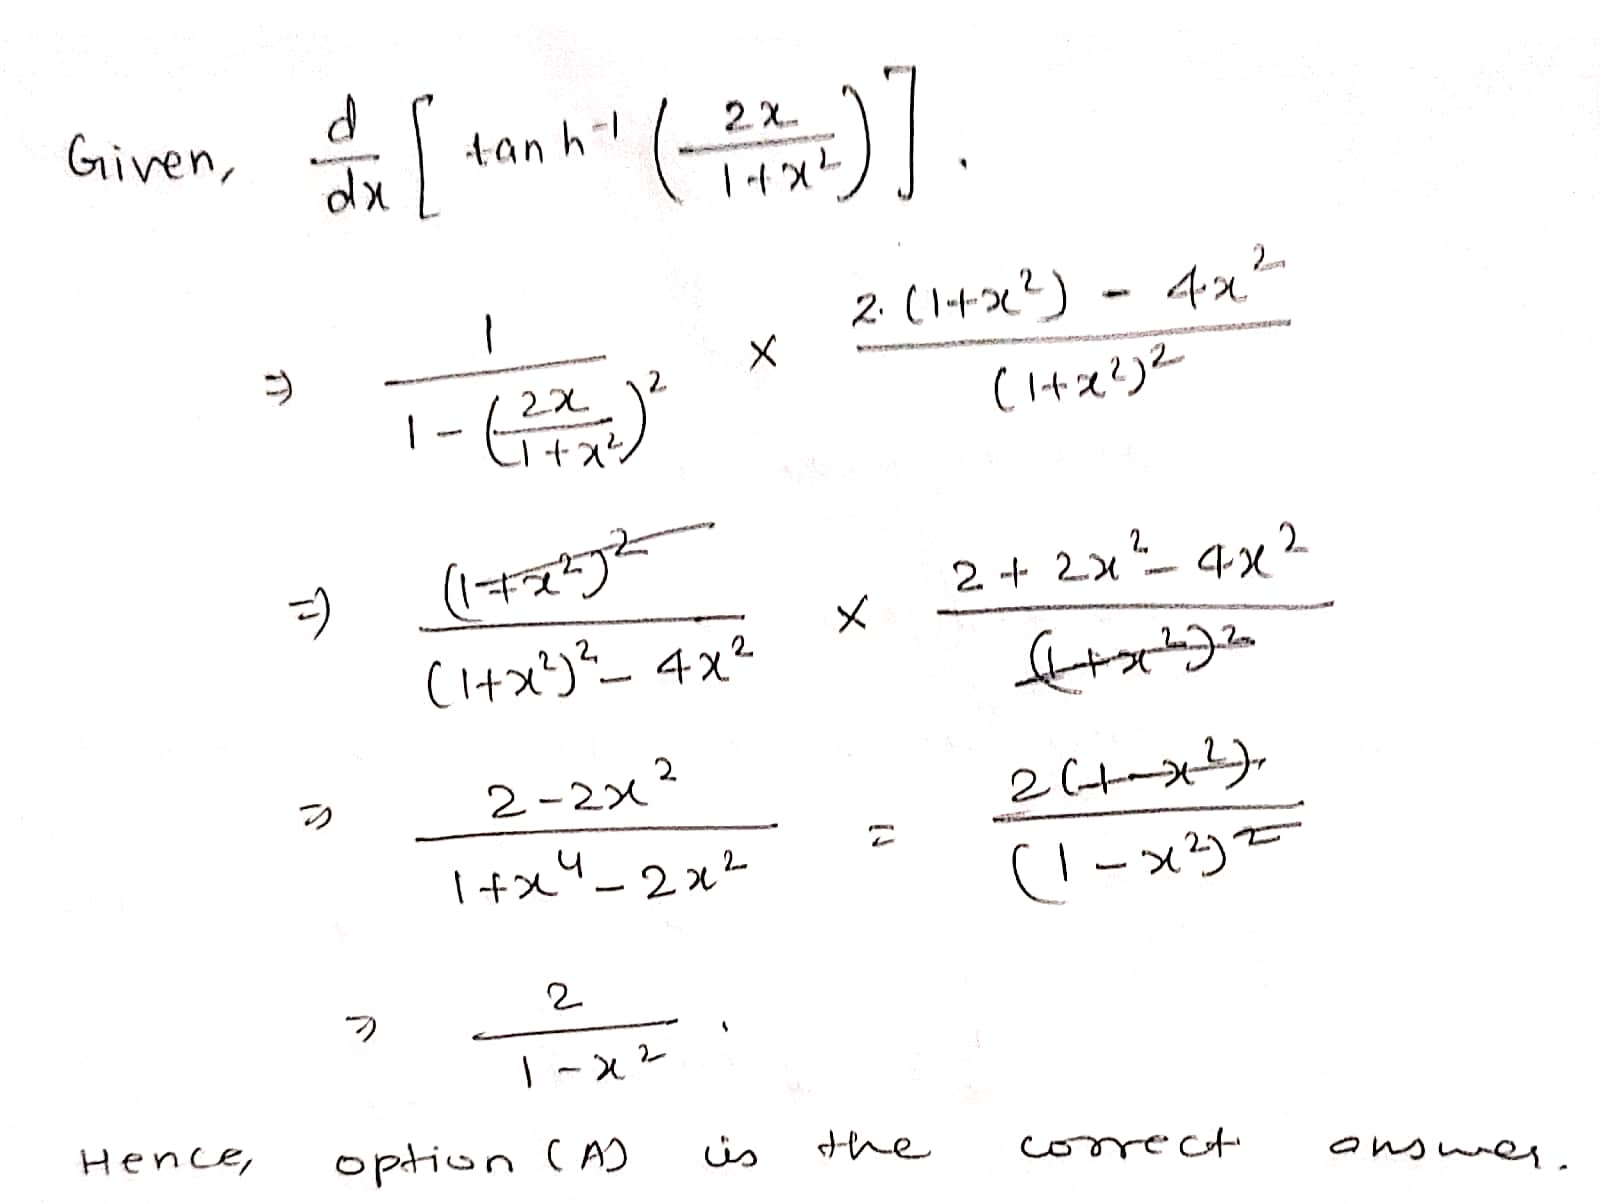 Given, d/dx [ tan h⁻¹ ( 2x / 1+x² ) ] .
⇒ 1 / 1 - ( 2x / 1+x² )² × 2. (1+x²) - 4x² / (1+x²)²
⇒ (1+x²)² / (1+x²)² - 4x² × 2 + 2x² - 4x² / (1+x²)²
⇒ 2 - 2x² / 1+x⁴ - 2x² = 2(1-x²) / (1-x²)²
⇒ 2 / 1-x² .
Hence, option (A) is the correct answer.